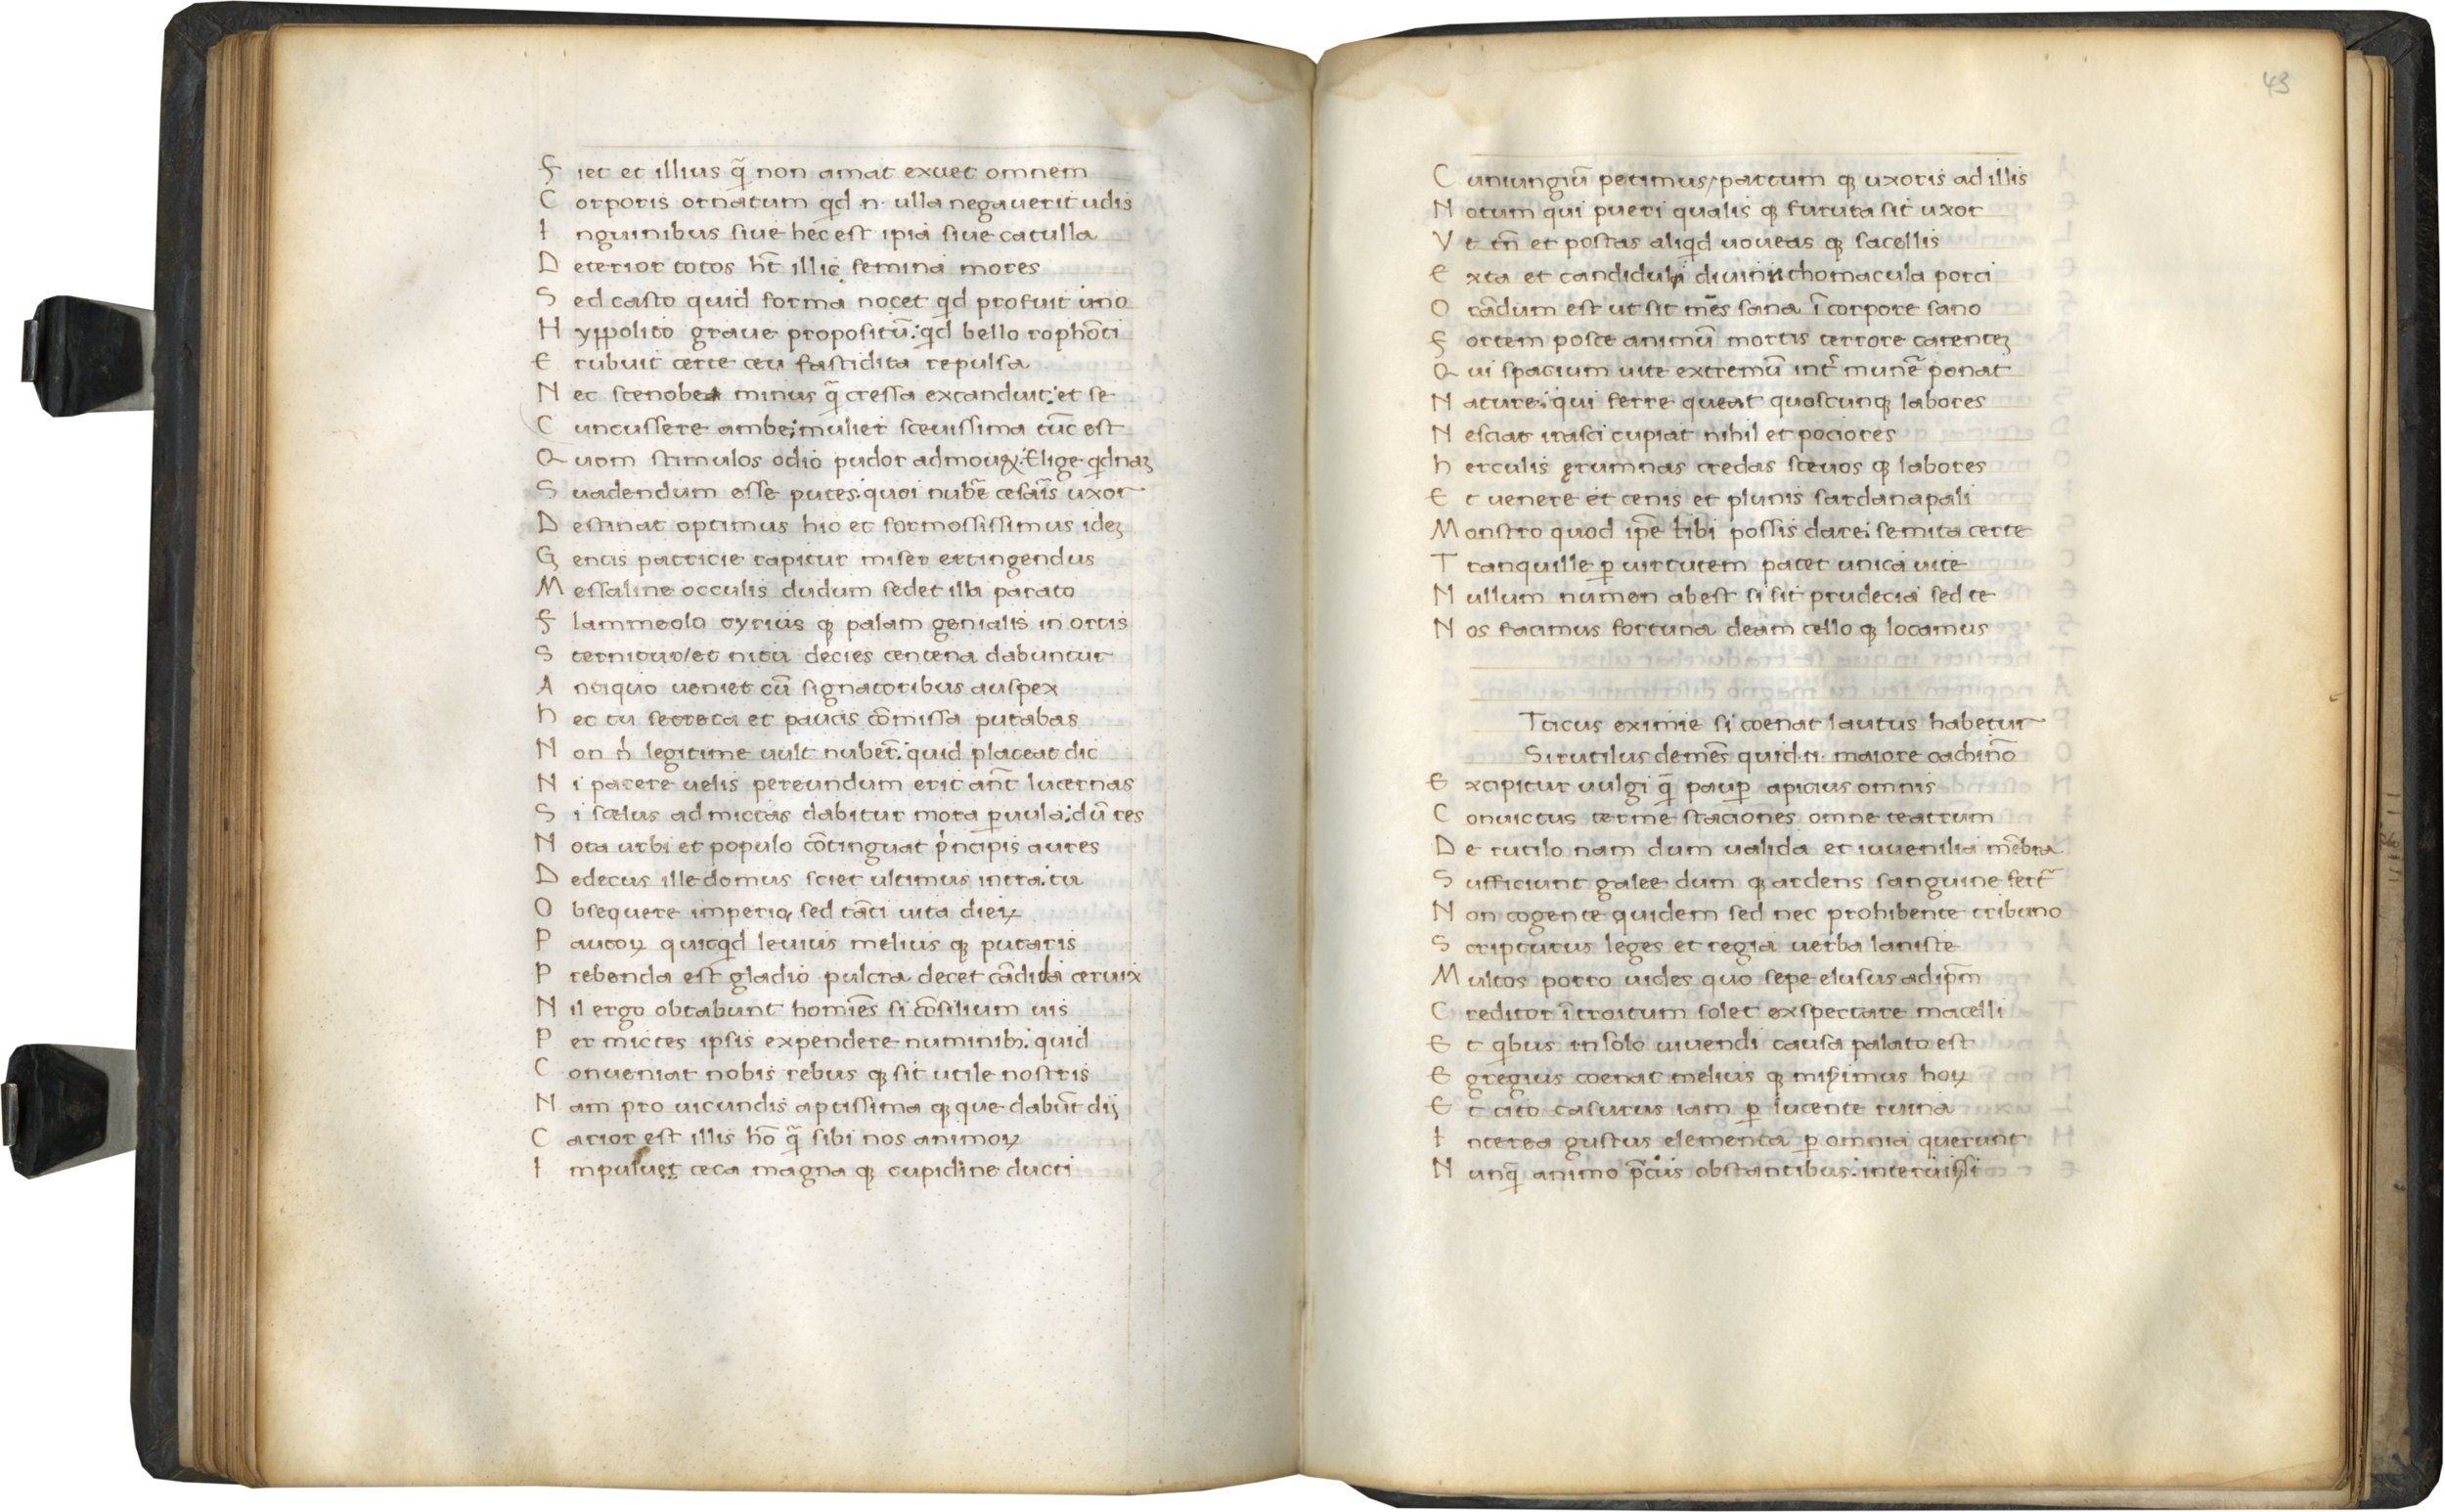 F iet et illius q̃ non amat exuet omnem
C orporis ornatum qd n· ulla negauerit udis
I nguinibus siue hec est ipia siue catulla
D eterior totos ht̄ illic femina mores
S ed casto quid forma nocet qd profuit imo
H yppolito graue propositū: qd bello rophōti
E rubuit certe ceu fastidita repulsa
N ec stenobea minus q̃ cressa excanduit: et se
C uncussere ambe: mulier sceuissima tūc est
Q uom stimulos odio pudor admouꝫ: Elige qdnaꝫ
S uadendum esse putes: quoi nubē cesaīs uxor
D estinat optimus hic et formossissimus ideꝫ
G entis patricie rapitur miser extingendus
M essaline occulis dudum sedet illa parato
F lammeolo tyrius qꝫ palam genialis in ortis
S ternitur/et ritu decies centena dabuntur
A ntiquo ueniet cū signatoribus auspex
h ec tu secreta et paucis cōmissa putabas
N on n̍ legitime uult nubet̄: quid placeat dic
N i parere uelis pereundum erit an̄t lucernas
S i scelus admictas dabitur mora ꝑuula: dū res
N ota urbi et populo cōtinguat p̍ncipis aures
D edecus ille domus sciet ultimus intra: tu
O bsequere imperio, sed tāti uita dieꝝ
P aucoꝝ quicqd leuius melius qꝫ putaris
P rebenda est gladio pulcra decet cādida ceruix
N il ergo obtabunt homiēs si cōsilium uis
P er mictes ipsis expendere numinibꝫ: quid
C onueniat nobis rebus qꝫ sit utile nostris
N am pro iucundis aptissima qꝫque dabūt dij
C arior est illis hō q̃ sibi nos animoꝝ
I mpulsuet ceca magna qꝫ cupidine ducti
43
C uniungiū petimus/partum qꝫ uxoris ad illis
N otum qui pueri qualis qꝫ fututa sit uxor
V t tn̄ et postas aliqd uoueas qꝫ sacellis
E xta et candiduli diuini thomacula porci
O rādum est ut sit mēs sana ī corpore sano
F ortem posce animū mortis terrore carenteꝫ
Q ui spacium uite extremū int̄ munēa ponat
N ature: qui ferre queat quoscunqꝫ labores
N esciat irasci cupiat nihil et pociores
h erculis ęrumnas credas sceuos qꝫ labores
E t uenere et cenis et plunis sardanapali
M onstro quod ip̄e tibi possis dare: semita certe
T ranquille ꝑ uirtutem patet unica uite
N ullum numen abest si sit prudecia sed te
N os facimus fortuna deam cello qꝫ locamus
Tacus eximie si coenat lautus habetur
Si rutilus demēs quid·n· maiore cachinō
E xcipitur uulgi q̃ pauꝑ apicius omnis
C onuictus terme staciones omne teatrum
D e rutilo nam dum ualida et iuuenilia mēbra
S ufficiunt galee dum qꝫ ardens sanguine fert̄
N on cogente quidem sed nec prohibente tribuno
S cripturus leges et regia uerba laniste
M ultos porro uides quo sepe elusus adip̄m
C reditor ītroitum solet exspectare macelli
E t qbus in solo uiuendi causa palato est
E gregius coenat melius qꝫ misimus hoꝝ
E t cito casurus iam ꝑ lucente ruina
I nterea gustus elementa ꝑ omnia querunt
N unq̃ animo p̄ciis obstantibus: interiussi